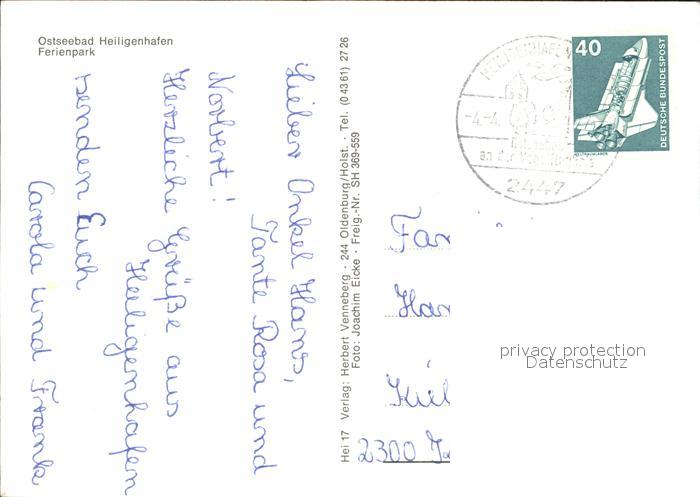 Ostseebad Heiligenhafen
Ferienpark
Lieber Onkel Hans,
Tante Rosa und
Norbert!
Herzliche Grüße aus
Heiligenhafen
senden Euch
Carola und Frank
Hei 17 Verlag: Herbert Venneberg · 244 Oldenburg/Holst. · Tel. (0 43 61) 27 26
Foto: Joachim Eicke · Freig.-Nr. SH 369-559
HEILIGENHAFEN
-4.-4.
Ostseebad
an der Vogelfluglinie
2447
40
DEUTSCHE BUNDESPOST
WELTRAUMLABOR
Fam
Han
Kiel
2300
privacy protection
Datenschutz